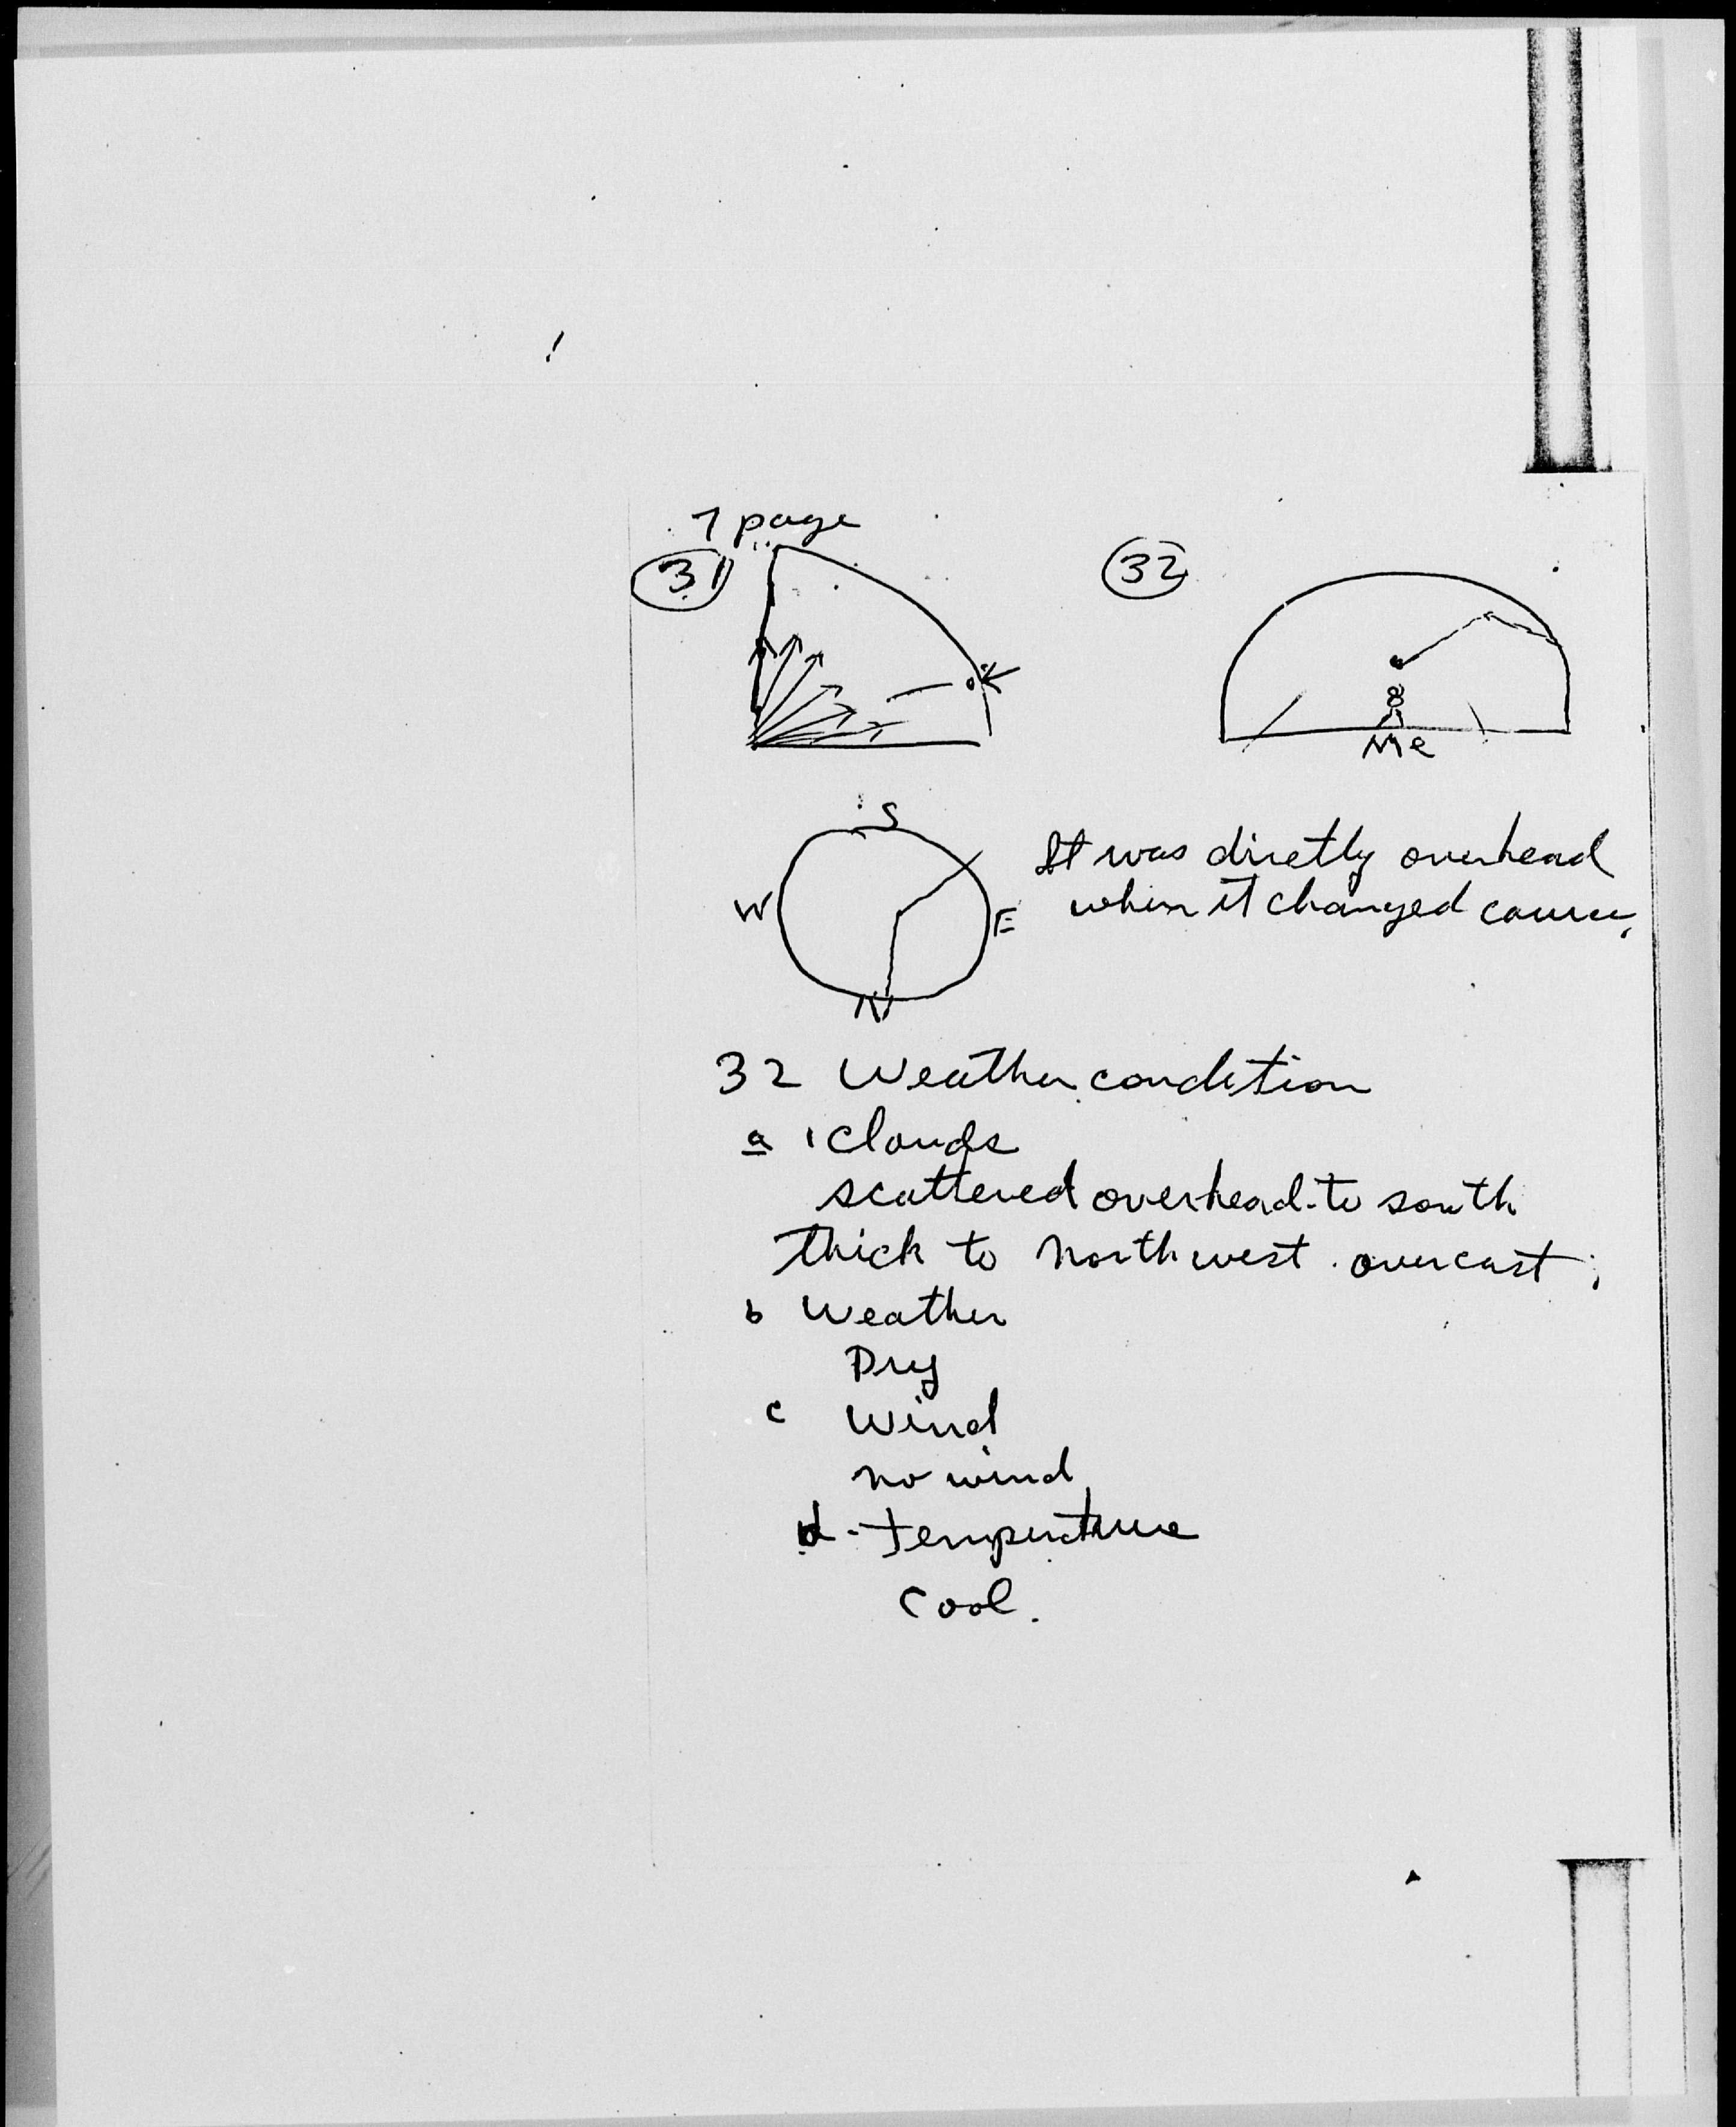 7 page
31
32
Me
S
W
E
N
It was diretly overhead
when it changed course,
32 Weather condition
a 1 Clouds
scattered overhead to south
thick to north west. overcast;
b Weather
Dry
c Wind
no wind
d - temperture
Cool.